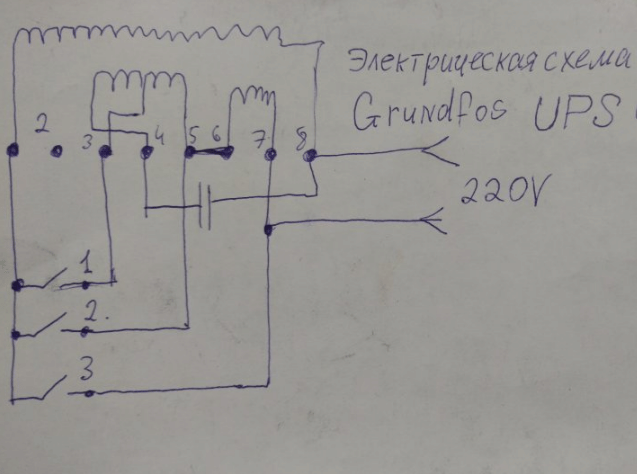 Электрическая схема
Grundfos UPS
2 3 4 5 6 7 8
220V
1
2.
3